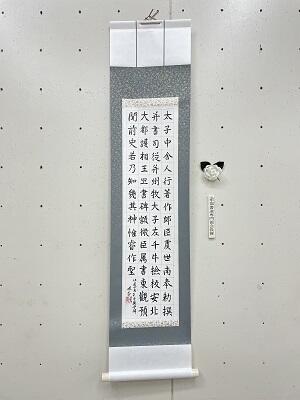 太子中舍人行著作郎臣虞世南奉勅撰
并書司徒并州牧太子左千牛撿挍安北
大都護相王旦書碑額微臣属書東觀預
聞前史若乃知幾其神惟睿作聖